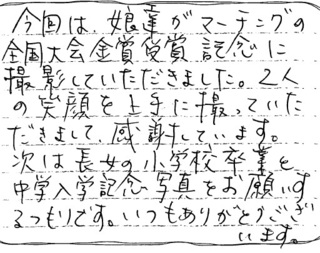 今回は、娘達がマーチングの
全国大会金賞受賞記念に
撮影していただきました。2人
の笑顔を上手に撮っていた
だきまして、感謝しています。
次は長女の小学校卒業と
中学入学記念写真をお願いす
るつもりです。いつもありがとうござ
います。